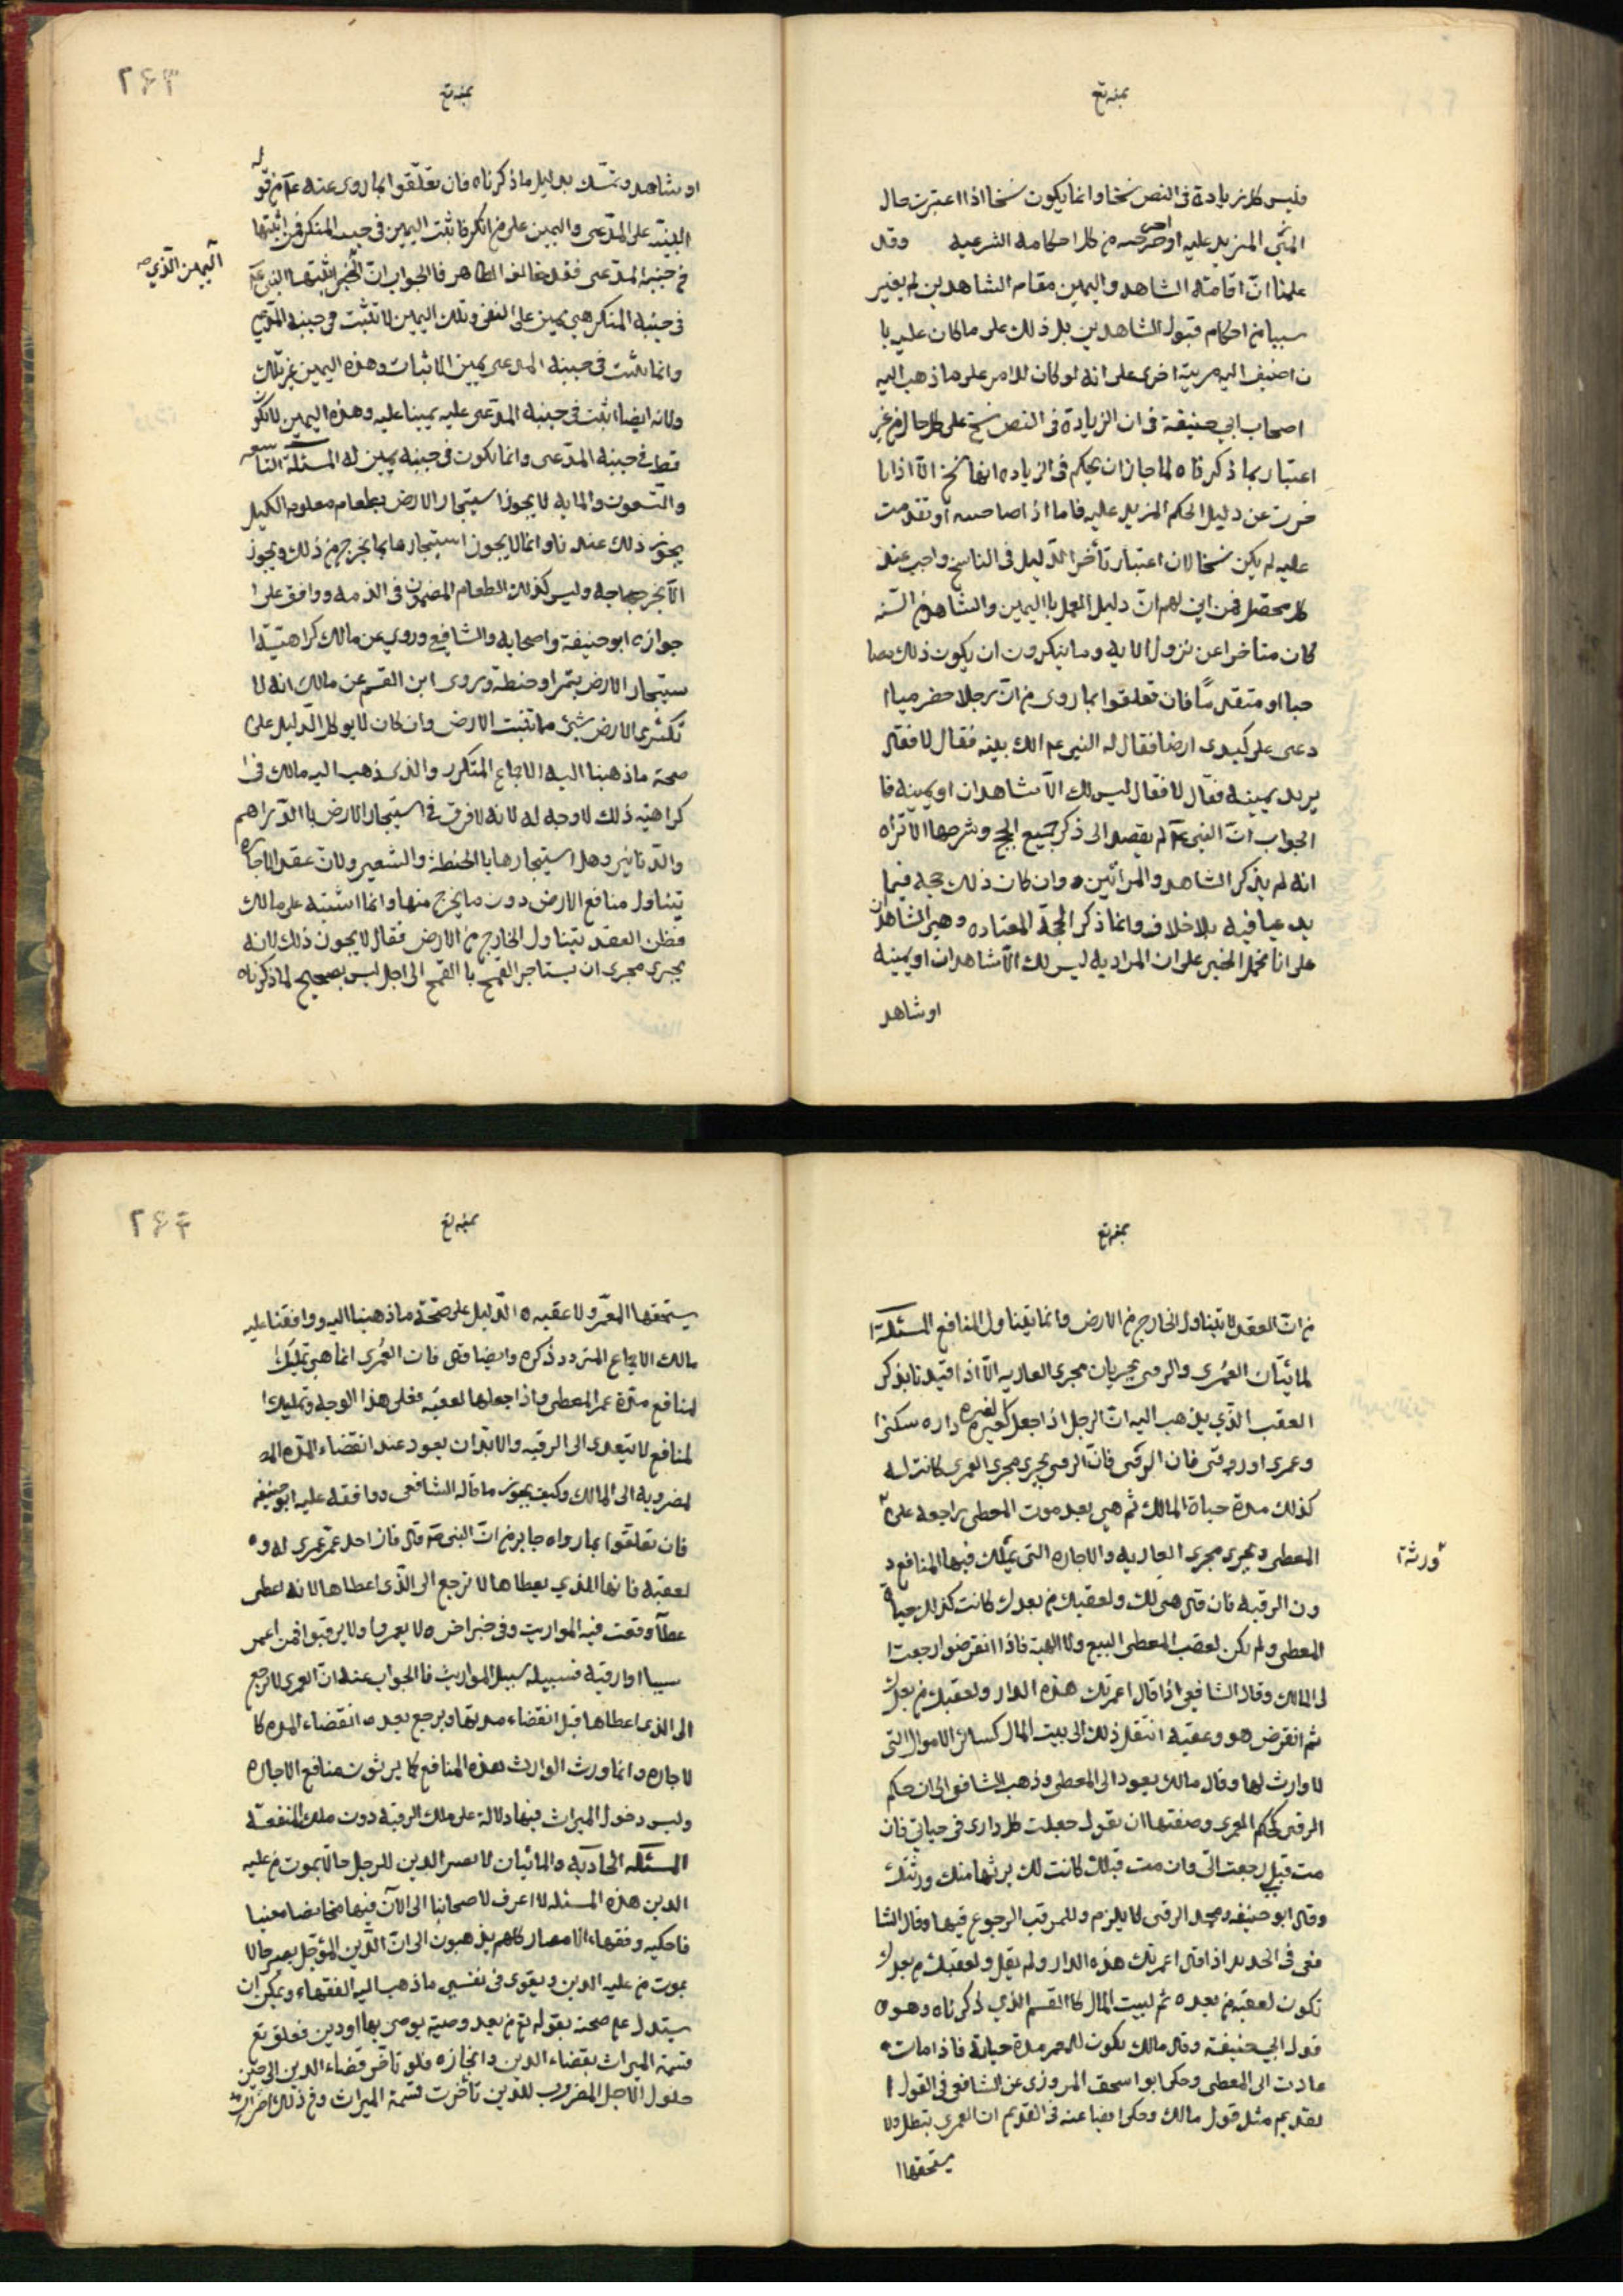 بمنه تع
وليس كل زيادة في النص نسخا وانما يكون نسخا اذا اعتبرت حال
المزيد عليه او من كل احكامه الشرعية وقد
علمنا ان اقامته الشاهد واليمين مقام الشاهدين لم يغير
سببا من احكام قبول الشاهدين بل ذلك على ما كان عليه با
ن اضيف اليه مرتبة اخرى على انه لو كان للامر على ما ذهب اليه
اصحاب ابي حنيفة في ان الزيادة في النص نسخ على كل حال من غير
اعتبار بما ذكرناه لما جاز ان يحكم في الزيادة انها نسخ الا اذا تا
خرت عن دليل الحكم المزيد عليه فاما اذا صاحبه او تقدمت
عليه لم يكن نسخا لان اعتبار تأخر الدليل في الناسخ واجب عند
كل محصل فمن اين لهم ان دليل العمل باليمين والشاهد من السنه
كان متاخرا عن نزول الايه وما ينكرون ان يكون ذلك مصا
حبا او متقدما فان تعلقوا بما روى من ان رجلا حضرميا ا
دعى على كندى ارضا فقال له النبي عم الك بينه فقال لا فقال
يريد يمينه فقال لا فقال ليس لك الا شاهدان او يمينه فا
الجواب ان النبي عم لم يقصد الى ذكر جميع الحجج وشرحها الا تراه
انه لم يذكر الشاهد والمرأتين ه وان كان ذلك حجة فيما
يدعيا فيه بلا خلاف وانما ذكر الحجة المعتاده وهي الشاهدان
على انا نحمل الخبر على ان المراد به ليس لك الا شاهدان او يمينه
او شاهد
٢٦٣
بمنه تع
او شاهد ونمسك بدليل ما ذكرناه فان تعلقوا بما روى عنه عم من قوله
البينة على المدعى واليمين على من انكر فاثبت اليمين في جنبه المنكر فمن اثبتها
في جنبه المدعى فقد خالف الظاهر فالجواب ان اثبتها النبي عم
اليمين الذي صه
في جنبه المنكر هي يمين على النفى وتلك اليمين لا تثبت في جنبه المدعى
وانما يثبت في جنبه المدعى يمين الاثبات وهذه اليمين غير تلك
ولانه ايضا اثبت في جنبه المدعى عليه يمينا عليه وهذه اليمين لا تكو
قط في جنبه المدعى وانما يكون في جنبه يمين له المسئلة التاسعه
والتسعون والمايه لا يجوز استيجار الارض بطعام معلوم الكيل
يجوز ذلك عندنا وانما لا يجوز استيجارها بما يخرج من ذلك ويجوز
الا يخرج حاجه وليس كذلك الطعام المضمون في الذمه ووافق على ا
جوازه ابو حنيفة واصحابه والشافعي وروي عن مالك كراهية ا
ستيجار الارض بتمر او حنطة وروى ابن القسم عن مالك انه لا
تكترى الارض بشئ مما تنبت الارض وان كان لا يوكل الدليل على
صحة ما ذهبنا اليه الاجماع المتكرر والذى ذهب اليه مالك في ا
كراهية ذلك لا وجه له لانه لا فرق في استيجار الارض بالدراهم
والدنانير وهل استيجارها بالحنطة والشعير ولان عقد الاجاره
يتناول منافع الارض دون ما يخرج منها وانما اشتبه على مالك
فظن العقد يتناول الخارج من الارض فقال لا يجوز ذلك لانه
يجرى مجرى ان يستاجر القمح بالقمح الى اجل ليس بصحيح لما ذكرناه
بمنه تع
من ان العقد لا يتناول الخارج من الارض وانما يتناول المنافع المسئلة ا
لمائتان العمرى والرقبى يجريان مجرى العاريه الا اذا قيدتا بذكر
العقب الذي يذهب اليه ان الرجل اذا جعل لغيره داره سكنى ا
وعمرى او رقبى فان الرقبى فان الرقبى يجرى مجرى العمرى كانت له
كذلك مدة حياة المالك ثم هي بعد موت المعطى راجعه على
ورثة
المعطى ويجرى مجرى العاريه والاجاره التى يملك فيها المنافع د
ون الرقبه فان قال هي لك ولعقبك من بعدك كانت كذلك حياة
المعطى ولم يكن لعقب المعطى البيع ولا الهبة فاذا انقرضوا رجعت ا
لى المالك وقال الشافعي اذا قال اعمرتك هذه الدار ولعقبك من بعدك
ثم انقرض هو وعقبه انتقل ذلك الى بيت المال كسائر الاموال التى
لا وارث لها وقال مالك يعود الى المعطى وذهب الشافعي الى ان حكم
الرقبى كحكم العمرى وصفتها ان يقول جعلت لك دارى في حياتي فان
مت قبلي رجعت الى وان مت قبلك كانت لك يرثها منك ورثتك
وقال ابو حنيفه ومحمد الرقبى لا يلزم وللمرقب الرجوع فيها وقال الشا
فعى في الجديد اذا قال اعمرتك هذه الدار ولم يقل ولعقبك من بعدك
تكون لعقبه من بعده ثم لبيت المال كالقسم الذي ذكرناه وهو
قول ابي حنيفة وقال مالك يكون للمعمر مدة حياته فاذا مات
عادت الى المعطى وحكى ابو اسحق المروزى عن الشافعي في القول ا
لقديم مثل قول مالك وحكى ايضا عنه في القديم ان العمرى تبطل ولا
يستحقها ا
٢٦٤
بمنه تع
يستحقها المعمر ولا عقبه ه الدليل على صحة ما ذهبنا اليه ووافقنا عليه
مالك الاجماع المتردد ذكره وايضا فان العمرى انما هي تمليك ا
لمنافع مدة عمر المعطى واذا جعلها لعقبه فعلى هذا الوجه وتمليك ا
لمنافع لا يتعدى الى الرقبه والابد ان يعود عند انقضاء المده الم
لضروبه الى المالك وكيف يجوز ما قاله الشافعي ووافقه عليه ابو حنيفه
فان تعلقوا بما رواه جابر من ان النبي صه قال فان احد عمر عمرى له و
لعقبه فانها للذي يعطاها لا ترجع الى الذى اعطاها لانه اعطى
عطآ وقعت فيه المواريث وفي خبر اخر ه لا يعمروا ولا يرقبوا فمن اعمر
سيبا او ارقبه فسبيله سبيل المواريث فالجواب عنه ان العمرى لا ترجع
الى الذى اعطاها قبل انقضاء مدتها ويرجع بعده انقضاء المده كا
لاجاره وانما ورث الوارث بهذه المنافع كما يرثون منافع الاجاره
وليس دخول الميراث فيها دلالة على ملك الرقبة دون ملك المنفعة
المسئلة الحاديه والمائتان لا يصير الدين للرجل حالا بموت من عليه
الدين هذه المسئله لا اعرف لاصحابنا الى الآن فيها نصا معينا
فاحكيه وفقهاء الامصار كلهم يذهبون الى ان الدين المؤجل يصير حالا
بموت من عليه الدين ويقوى في نفسي ما ذهب اليه الفقهاء ويمكن ان
يستدل على صحته بقوله تع من بعد وصية يوصى بها او دين فعلق تع
قسمة الميراث بقضاء الدين وانجازه فلو تاخر قضاء الدين الى حين
حلول الاجل المضروب للدين تأخرت قسمة الميراث وفي ذلك اضرار